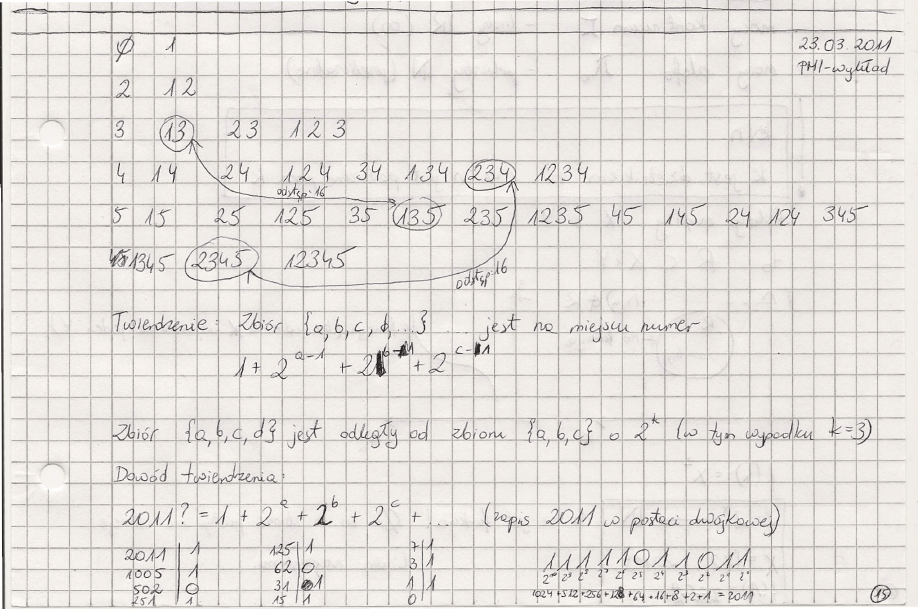 23.03.2011
PMI-wykład
∅ 1
2 12
3 13 23 123
4 14 24 124 34 134 234 1234
odstęp: 16
5 15 25 125 35 135 235 1235 45 145 24 124 345
1345 2345 12345
odstęp: 16
Twierdzenie: Zbiór {a, b, c, d, ...} .... jest na miejscu numer
1 + 2^(a-1) + 2^(b-1) + 2^(c-1)
Zbiór {a, b, c, d} jest odległy od zbioru {a, b, c} o 2^k (w tym wypadku k=3)
Dowód twierdzenia:
2011? = 1 + 2^a + 2^b + 2^c + ... (zapis 2011 w postaci dwójkowej)
2011 | 1 125 | 1 7 | 1
1005 | 1 62 | 0 3 | 1
502 | 0 31 | 1 1 | 1
251 1 15 | 1 0 |
1 1 1 1 1 0 1 1 0 1 1
1024 + 512 + 256 + 128 + 64 + 16 + 8 + 2 + 1 = 2011
15